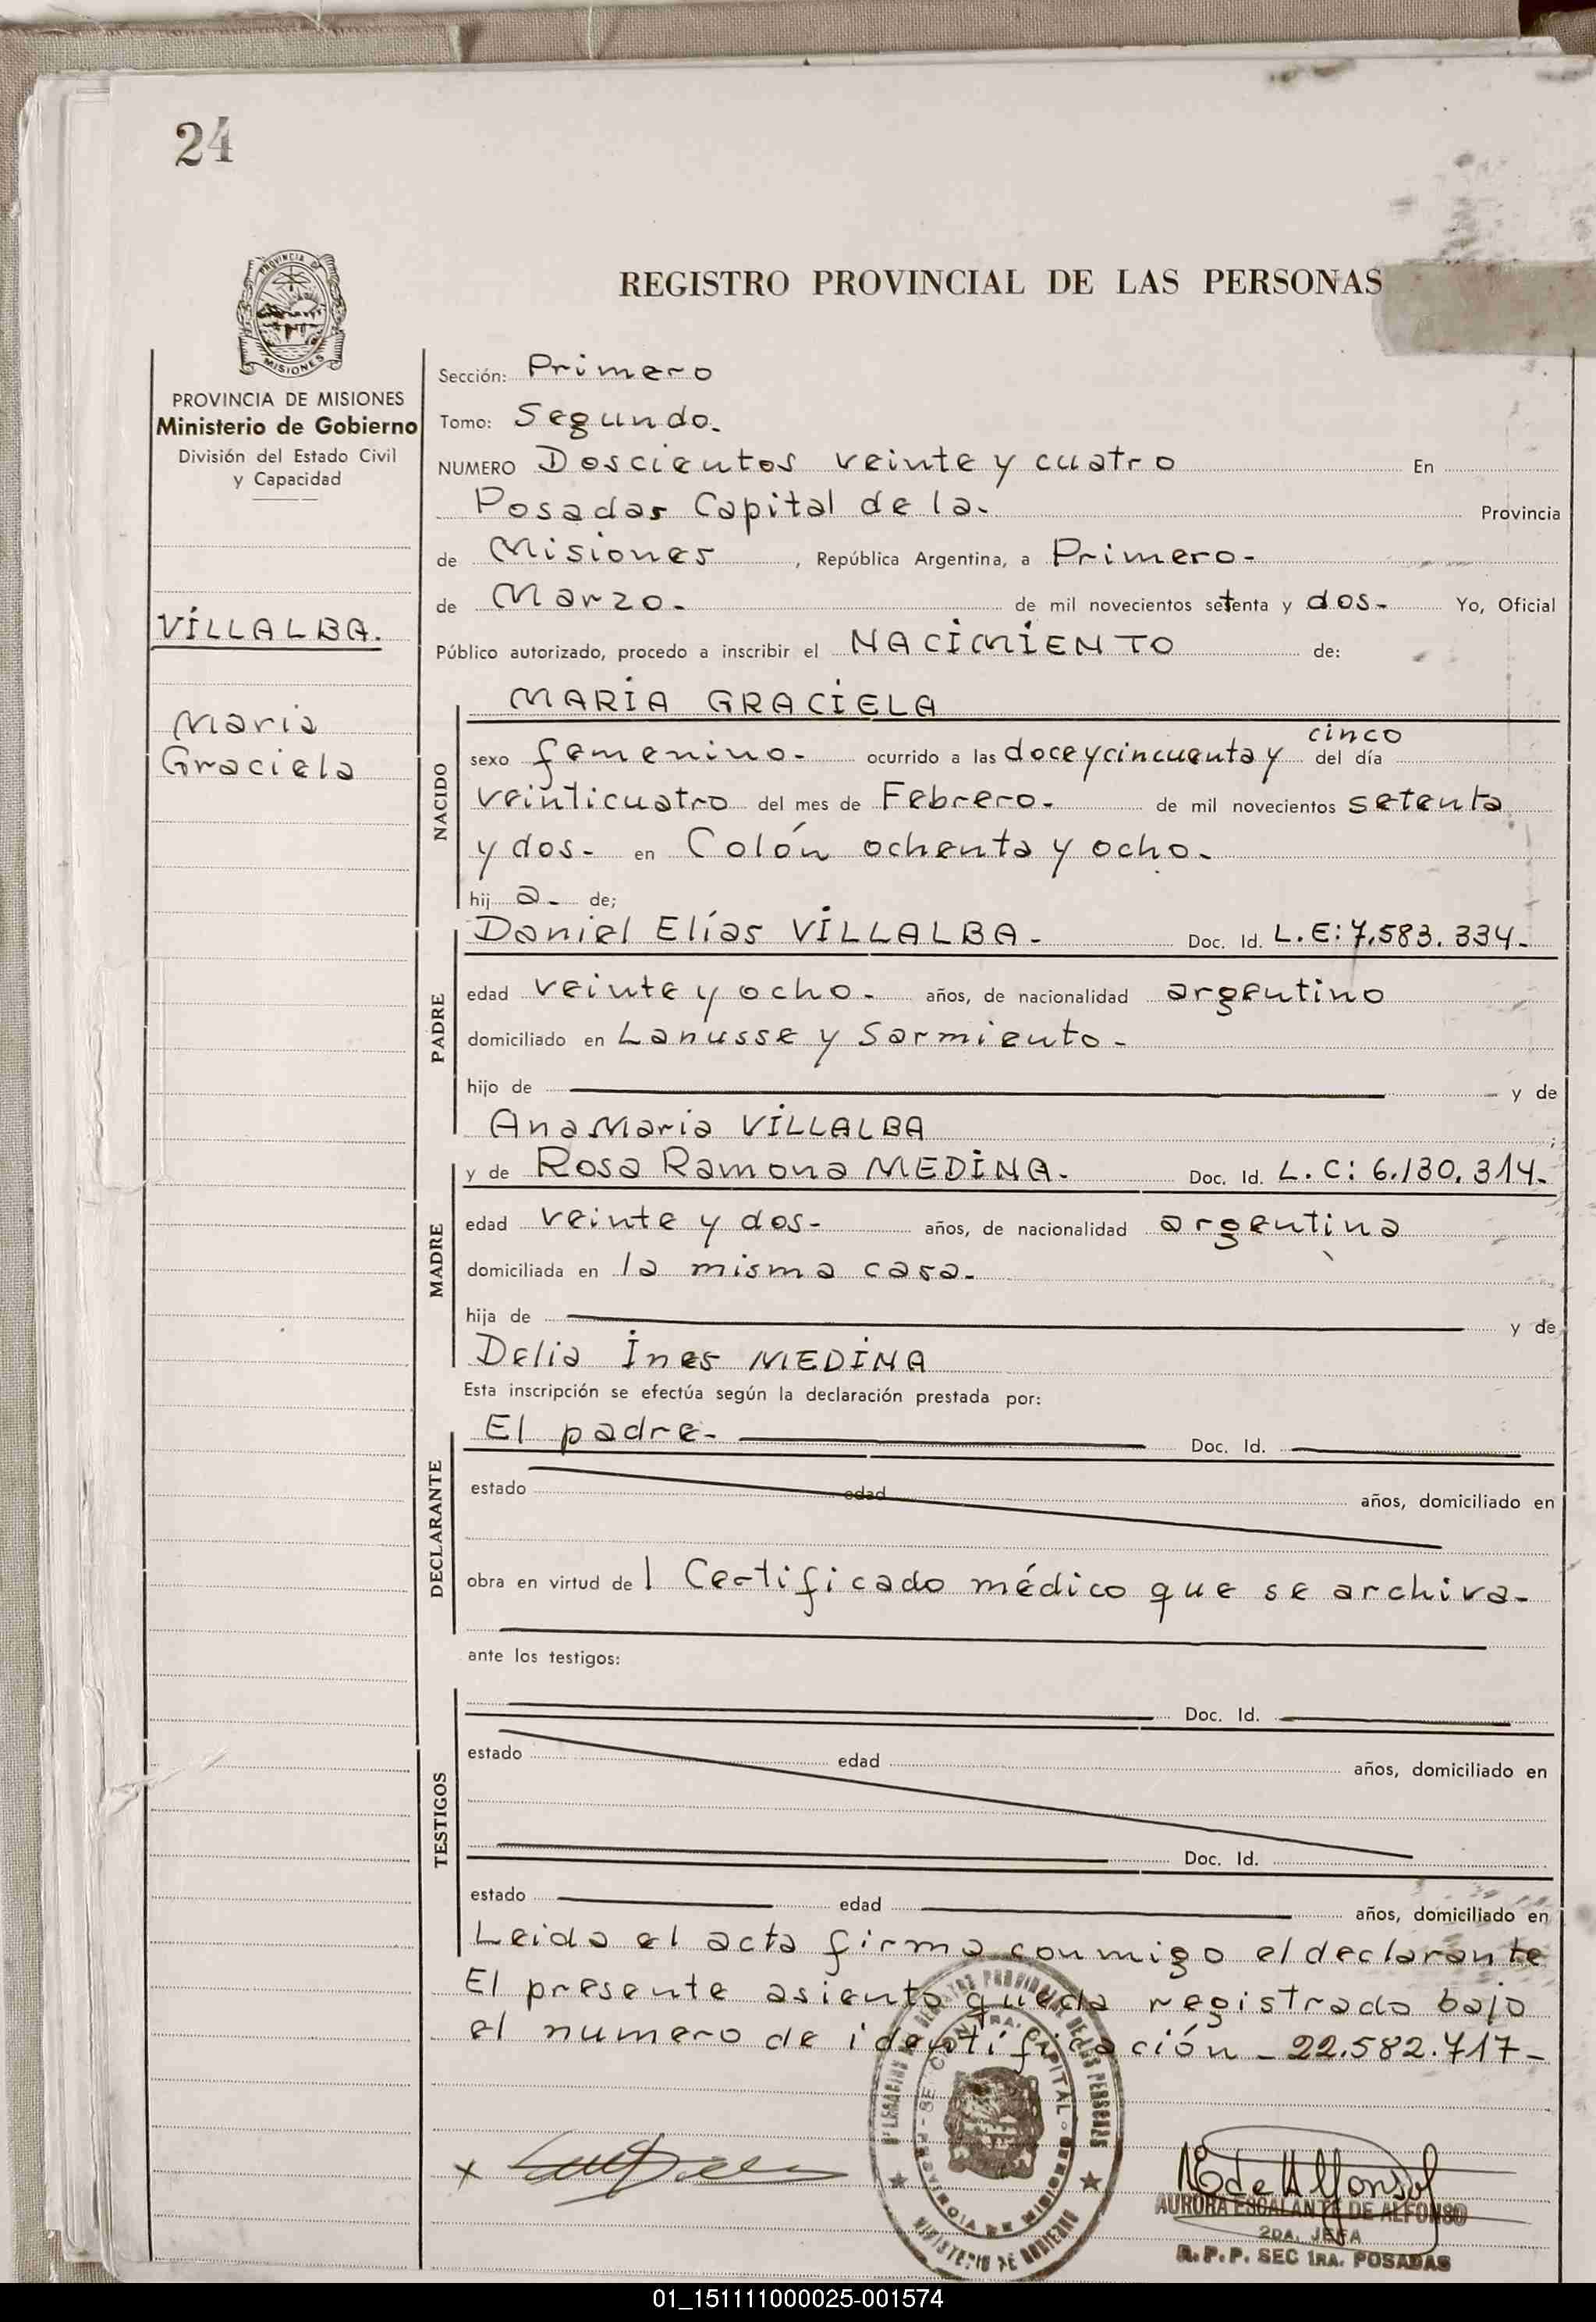 24
REGISTRO PROVINCIAL DE LAS PERSONAS
PROVINCIA DE MISIONES
PROVINCIA DE MISIONES
Ministerio de Gobierno
División del Estado Civil
y Capacidad
VILLALBA.
Maria
Graciela
Sección: Primero
Tomo: Segundo.
NUMERO Doscientos veinte y cuatro En
Posadas Capital de la. Provincia
de Misiones, República Argentina, a Primero-
de Marzo. de mil novecientos setenta y dos- Yo, Oficial
Público autorizado, procedo a inscribir el NACIMIENTO de:
NACIDO
MARIA GRACIELA
sexo femenino. ocurrido a las doce y cincuenta y cinco del día
veinticuatro del mes de Febrero. de mil novecientos setenta
y dos- en Colón ochenta y ocho.
hij a. de;
PADRE
Daniel Elías VILLALBA. Doc. Id. L.E: 7.583.334-
edad veinte y ocho. años, de nacionalidad argentino
domiciliado en Lanusse y Sarmiento-
hijo de y de
Ana Maria VILLALBA ;
MADRE
y de Rosa Ramona MEDINA. Doc. Id. L.C: 6.130.314.
edad veinte y dos- años, de nacionalidad argentina
domiciliada en la misma casa.
hija de y de
Delia Ines MEDINA
Esta inscripción se efectúa según la declaración prestada por:
DECLARANTE
El padre- Doc. Id.
estado edad años, domiciliado en
obra en virtud de l Certificado médico que se archiva-
ante los testigos:
TESTIGOS
Doc. Id.
estado edad años, domiciliado en
Doc. Id.
estado edad años, domiciliado en
Leida el acta firma conmigo el declarante
El presente asiento queda registrado bajo
el numero de identificación - 22.582.717-
SECCION 1RA. CAPITAL
PROVINCIA DE MISIONES
MINISTERIO DE GOBIERNO
x
AURORA ESCALANTE DE ALFONSO
2DA. JEFA
R.P.P. SEC 1RA. POSADAS
01_151111000025-001574